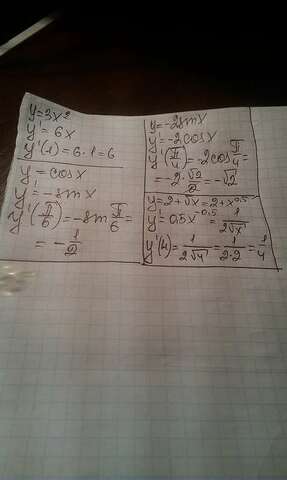 y=3x²
y'=6x
y'(1)=6·1=6
y=cosx
y'=-sinx
y'(π/6)=-sin π/6=
=-1/2
y=-2sinx
y'=-2cosx
y'(π/4)=-2cos π/4=
=-2·√2/2=-√2
y=2+√x=2+x^0,5
y'=0,5x^-0,5=1/(2√x)
y'(4)=1/(2√4)=1/(2·2)=1/4